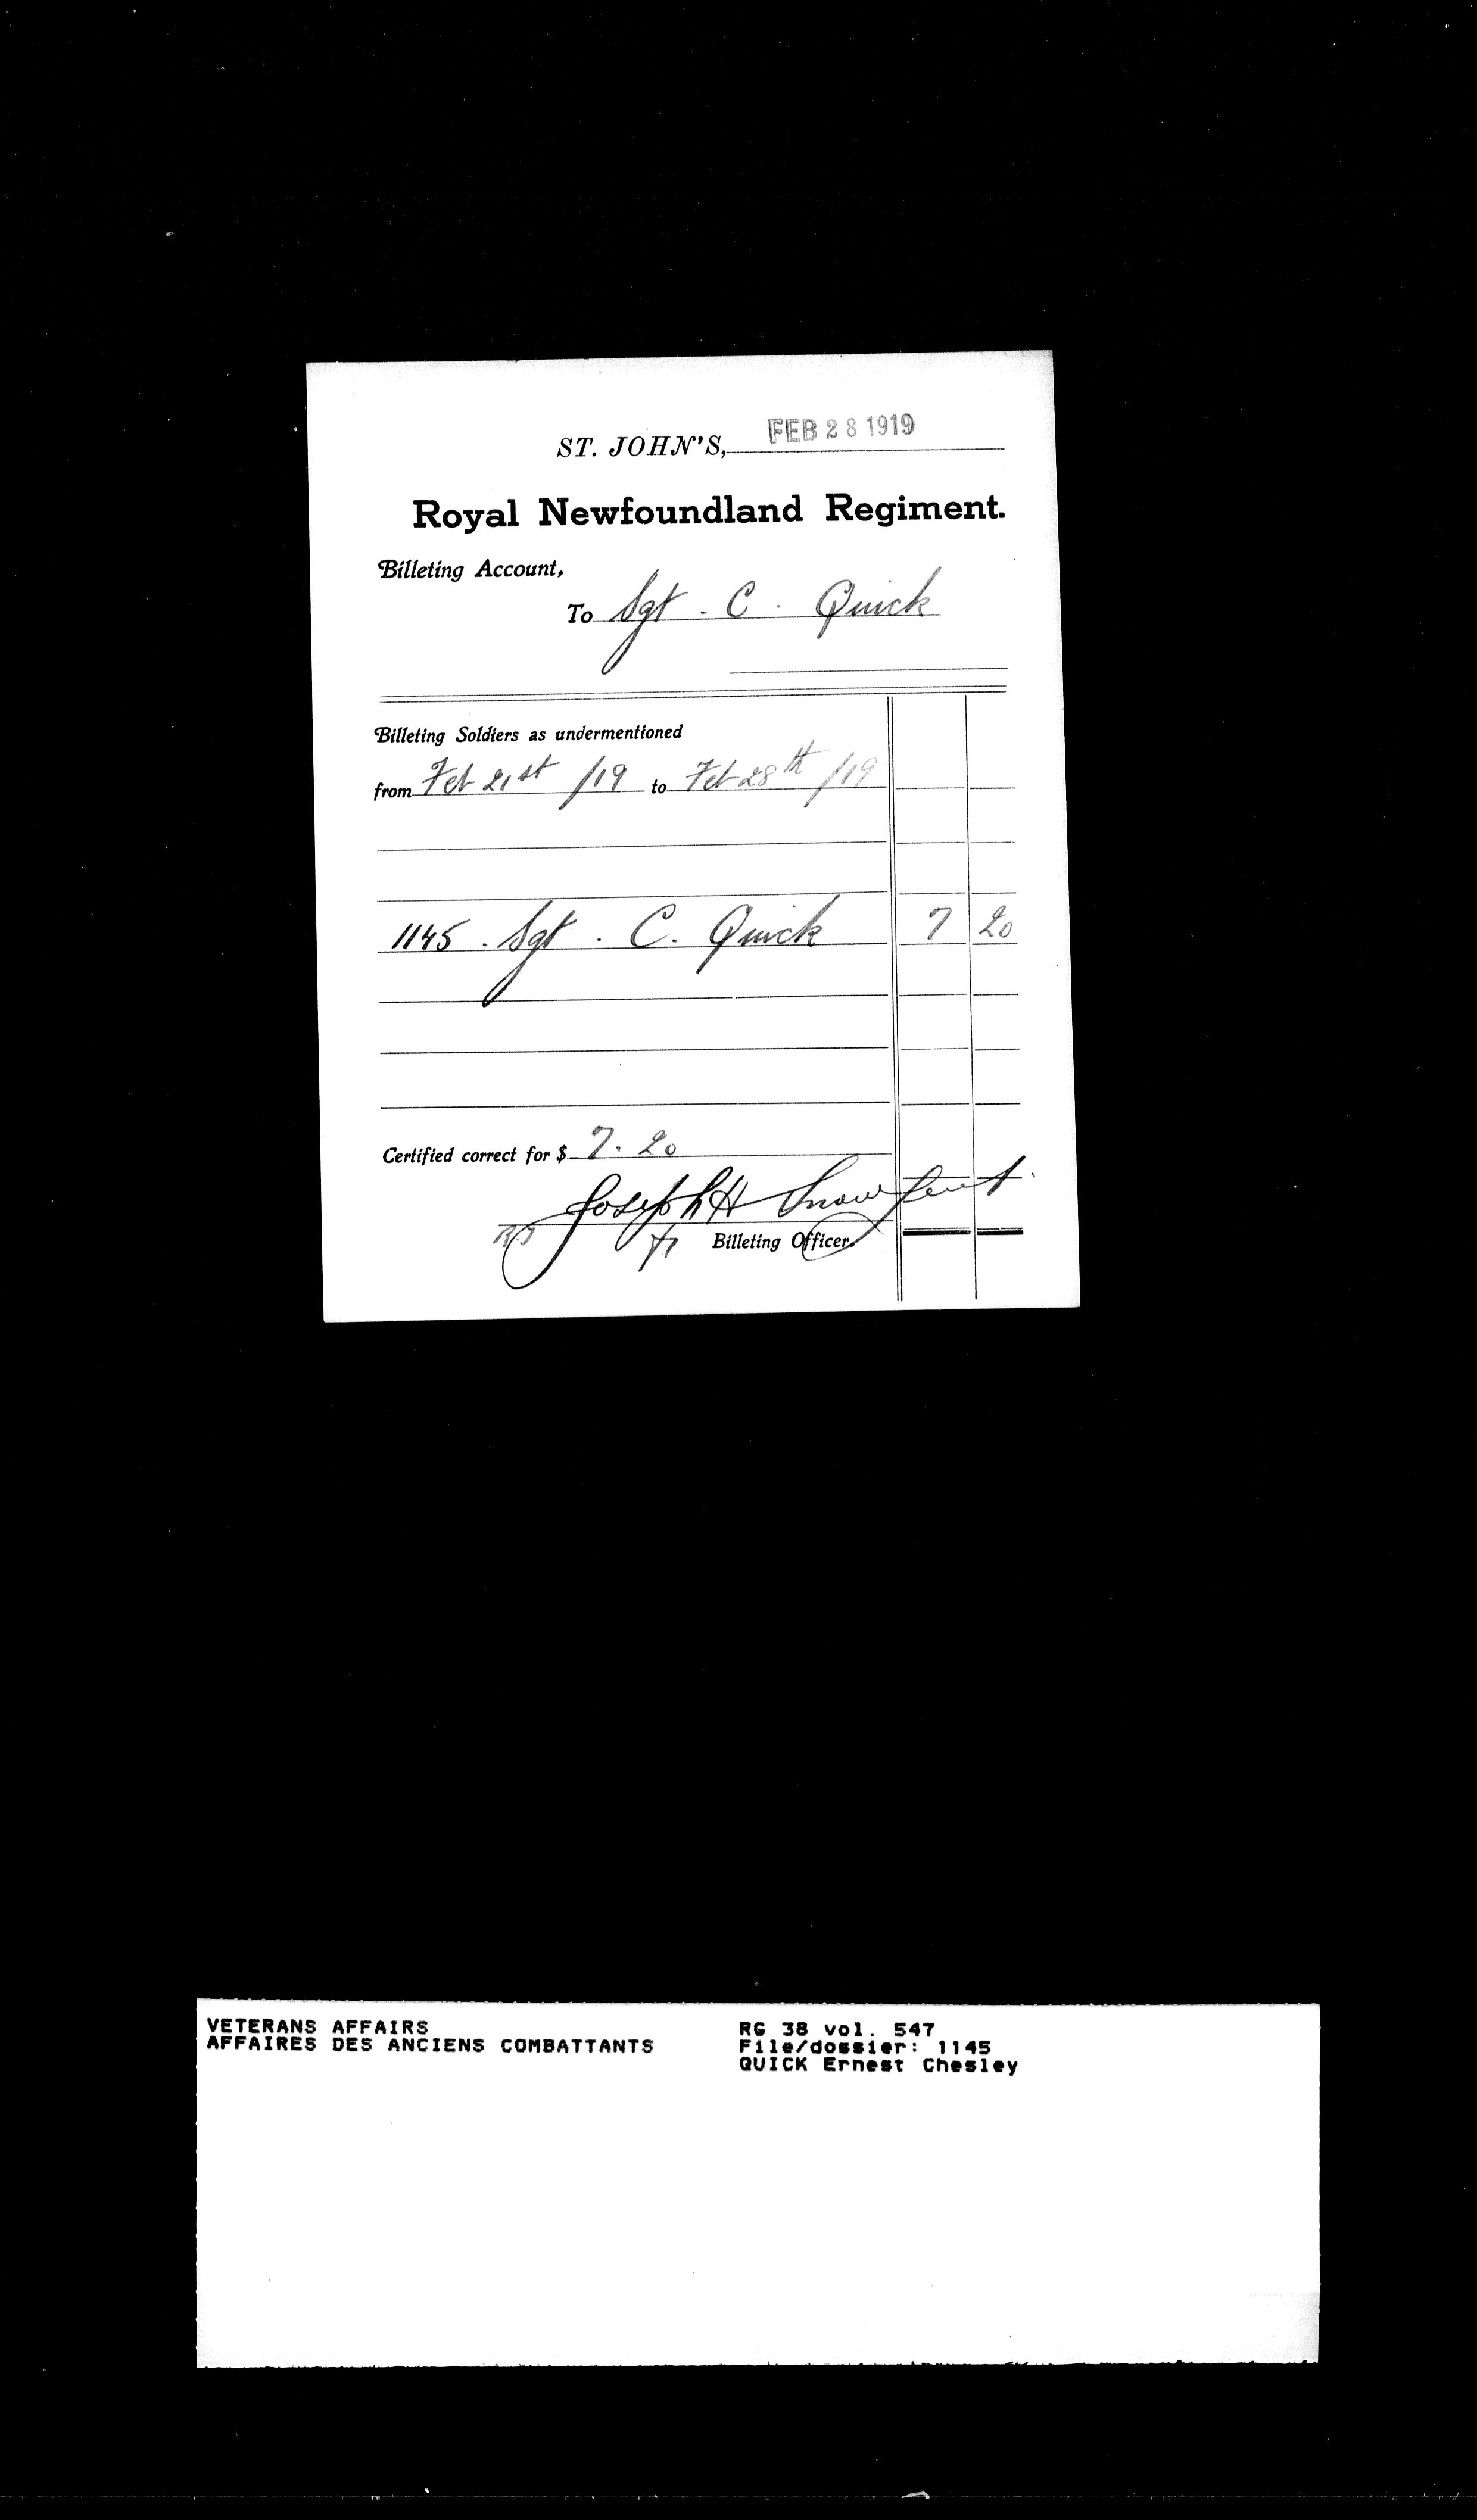 ST. JOHN'S, FEB 28 1919
Royal Newfoundland Regiment.
Billeting Account,
To Sgt. C. Quick
Billeting Soldiers as undermentioned
from Feb 21st /19 to Feb 28th /19
1145. Sgt. C. Quick 7 20
Certified correct for $ 7.20
Joseph H Snow Lieut.
Billeting Officer.
VETERANS AFFAIRS
AFFAIRES DES ANCIENS COMBATTANTS
RG 38 vol. 547
File/dossier: 1145
QUICK Ernest Chesley